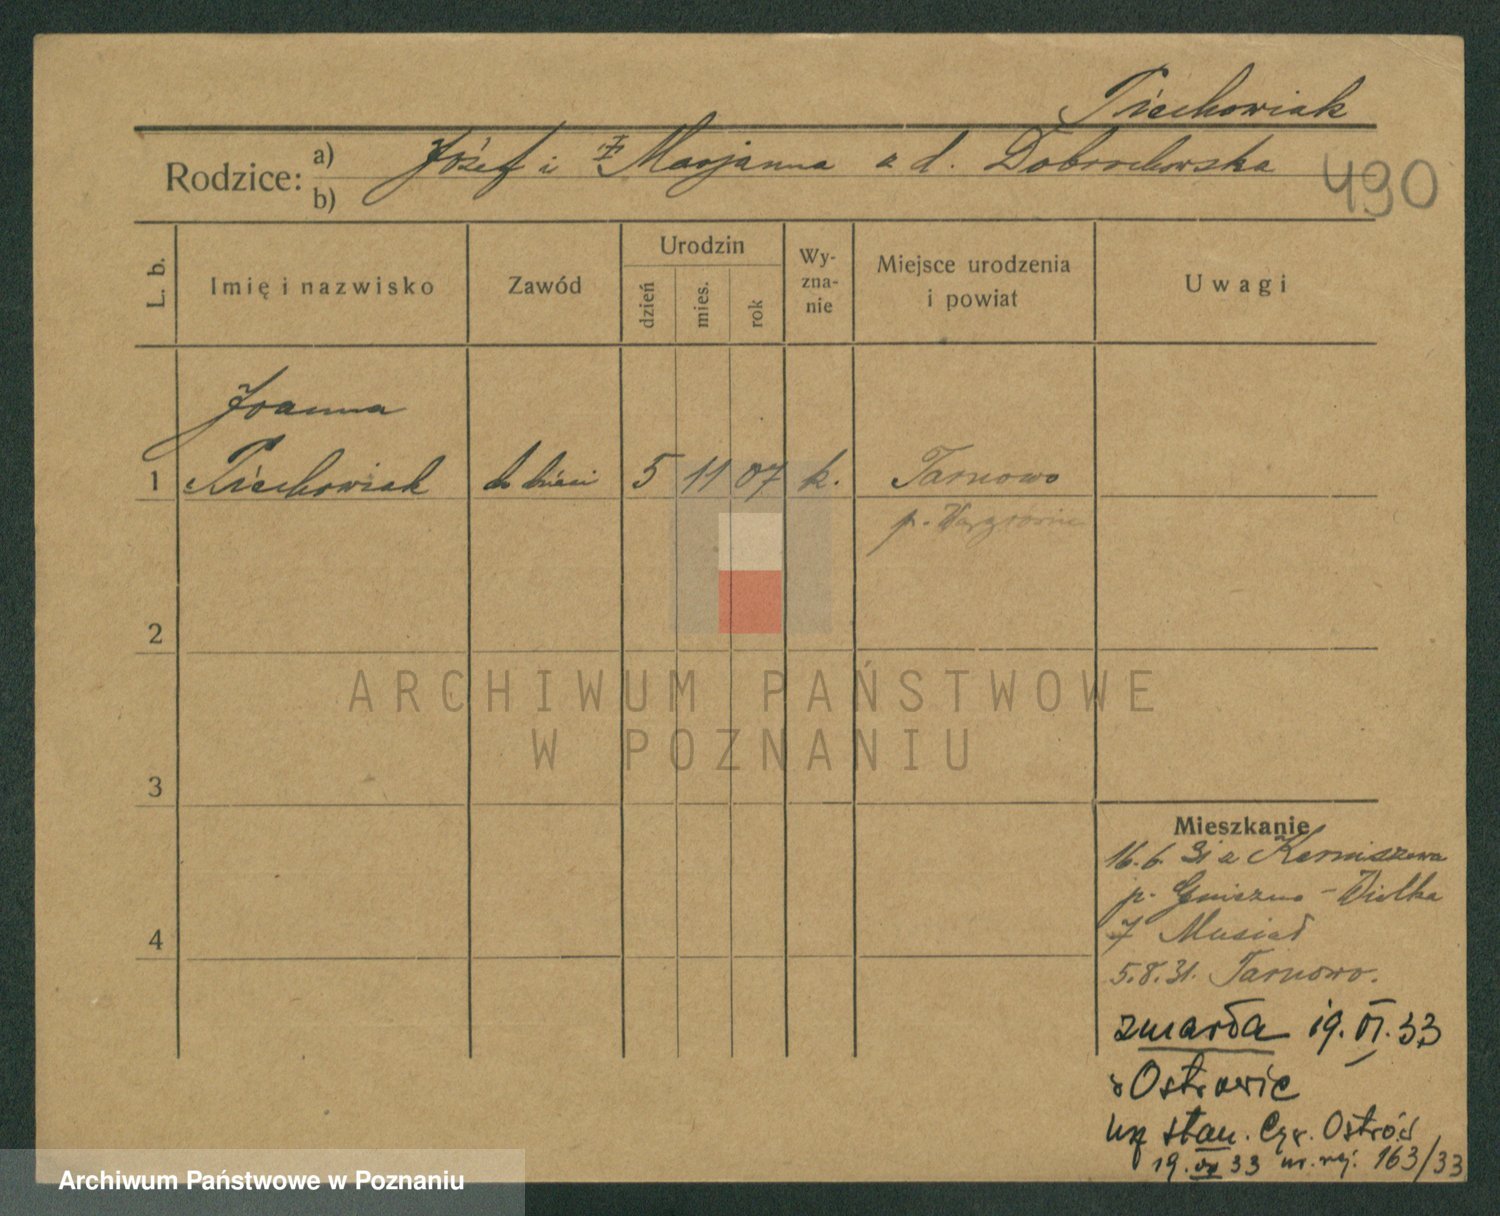 Piechowiak
Rodzice: a) Józef i Marjanna z d. Dobrochowska
b)
490
L. b.
Imię i nazwisko
Zawód
Urodzin
dzień
mies.
rok
Wy-
zna-
nie
Miejsce urodzenia
i powiat
Uwagi
Joanna
1 Piechowiak do dzieci 5 11 07 k. Tarnowo
p.
2
3
4
ARCHIWUM PAŃSTWOWE
W POZNANIU
Mieszkanie
16.6.31 z
p. Gniezno - Wielka
7 Musiał
5.8.31. Tarnowo.
zmarła 19.VI.33
w Ostrowie
stan. Cyw. Ostrów
19. VI 33 nr. rej. 163/33
Archiwum Państwowe w Poznaniu